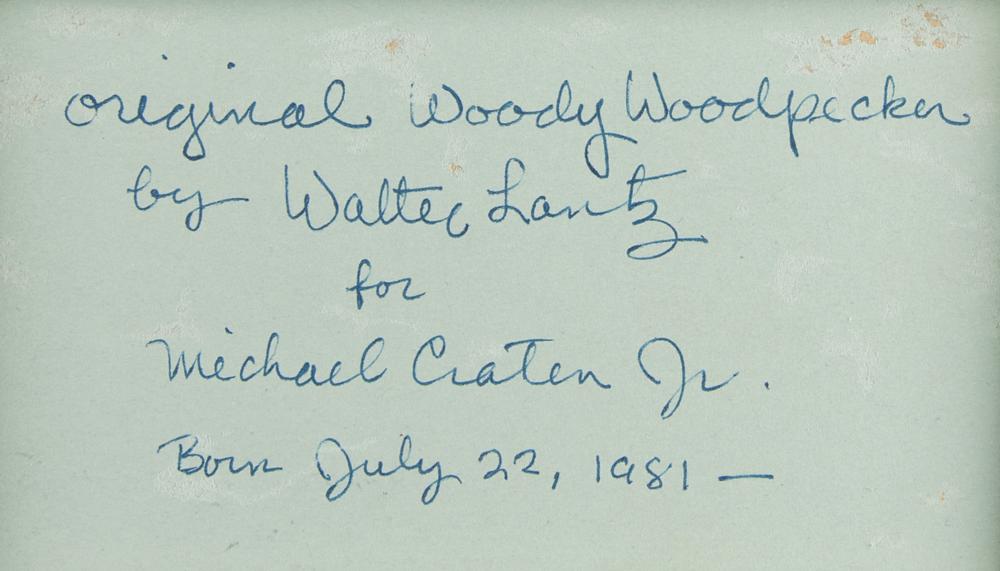 original Woody Woodpecker
by Walter Lantz
for
Michael Craten Jr.
Born July 22, 1981 —